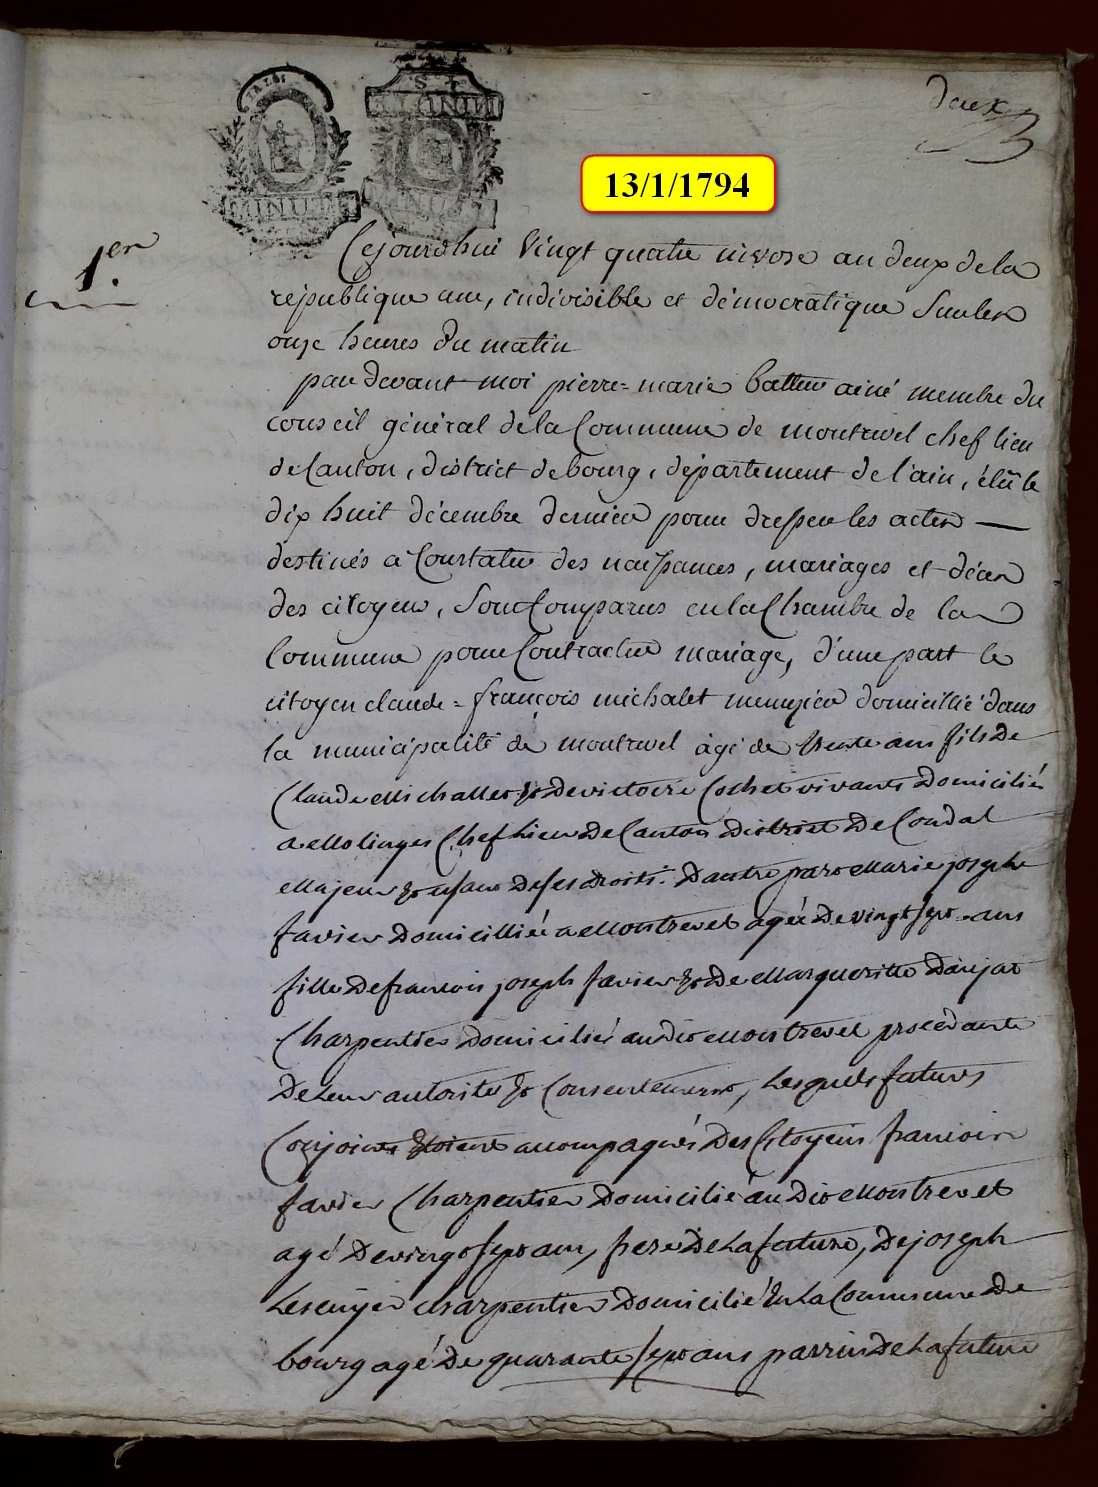 deux
13/1/1794
LA LOI
MINUTE
1.er
Cejourdhui Vingt quatre nivose an deux de la
république une, indivisible et démocratique Sur les
onze heures du matin
par devant moi pierre=marie ainé membre du
conseil général de la Commune de montrevel chef lieu
de Canton, district de bourg, département de l'ain, élû le
dix huit décembre dernier pour dresser les actes
destinés à Constater des naissances, mariages et décès
des citoyens, Sont Comparus en la Chambre de la
Commune pour Contracter mariage, d'une part le
citoyen claude=françois michalet menuzier domicillié dans
la municipalité de montrevel âgé de trente ans fils de
Claude Michallet & de victoire Cochet vivants Domiciliés
a Molinges Chef Lieu De Canton District De Condat
Majeur & usant de ses droits. D'autre part Marie joseph
favier Domicilliée a Montrevel agée De vingt sept ans
fille De francois joseph favier & De Margueritte
Charpentier Domicilié au Dit Montrevel procédante
De Leur autorité & Consentement, Lesquels futurs
Conjoints Etoient accompagnés Des Citoyens francois
favier Charpentier Domicilié au Dit Montrevel
agé De vingt sept ans, frere De La future, De joseph
Lescuyer charpentier Domicilié En La Commune De
bourg agé De quarante sept ans parrin De La future